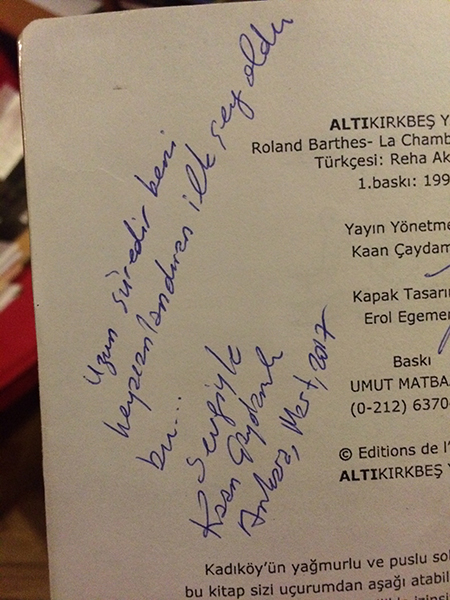 Uzun süredir beni
heyecanlandıran ilk şey oldu
bu...
Sevgiyle
Kaan Çaydamlı
Ankara, Mart, 2017
ALTIKIRKBEŞ Y
Roland Barthes- La Chamb
Türkçesi: Reha Ak
1.baskı: 199
Yayın Yönetme
Kaan Çaydam
Kapak Tasarı
Erol Egemen
Baskı
UMUT MATBA
(0-212) 6370
© Editions de l'
ALTIKIRKBEŞ Y
Kadıköy'ün yağmurlu ve puslu so
bu kitap sizi uçurumdan aşağı atabil